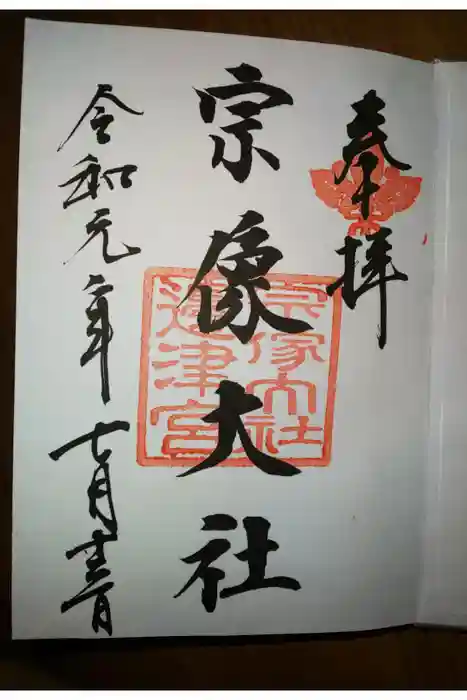 奉拝
宗像大社
宗像大社
邊津宮
令和元年七月十三日